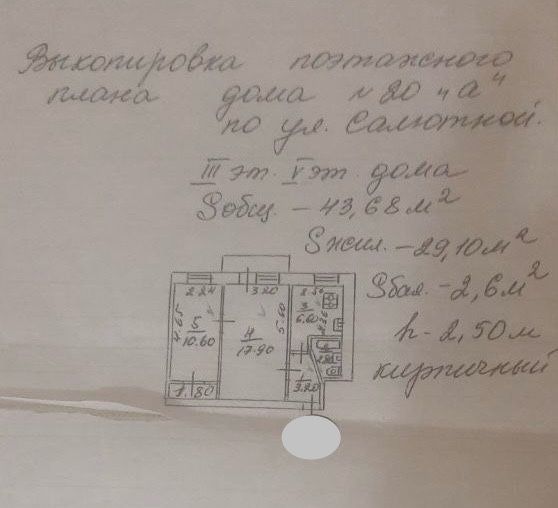 Выкопировка поэтажного
плана дома №20 "а"
по ул. Салютной.
III эт. V эт. дома
Sобщ. – 43,68 м²
Sжил. – 29,10 м²
Sбал. – 2,6 м²
h – 2,50 м
кирпичный
2.24 3.20 2.50
4.65 5 10.60
4 17.90 5.60
3 6.60
1.80
1 3.20